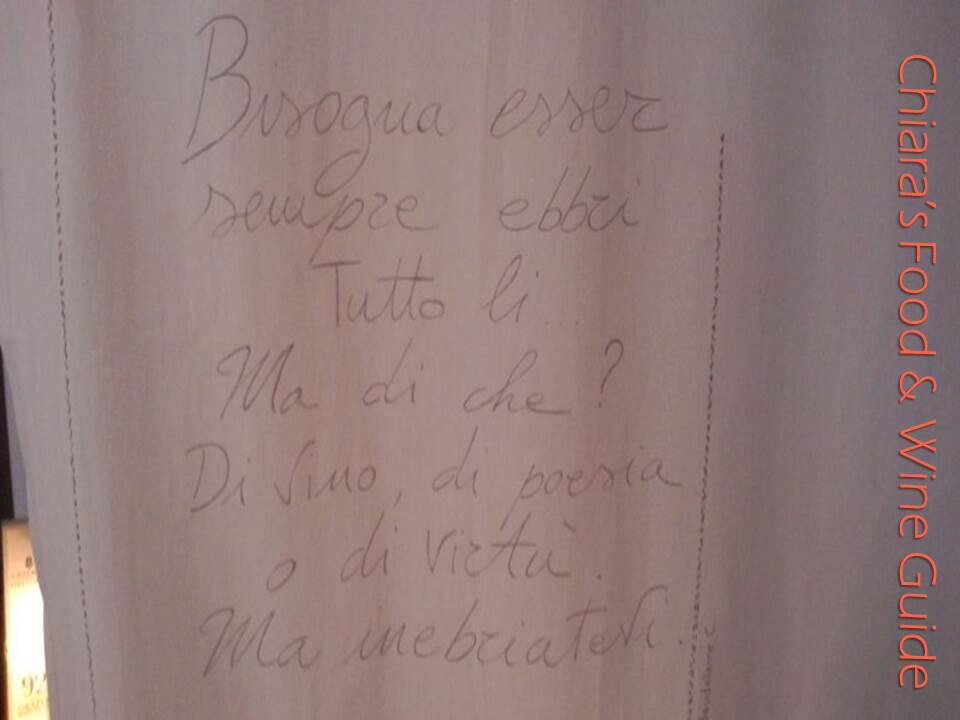 Bisogna esser
sempre ebbri
Tutto li...
Ma di che?
Di vino, di poesia
o di virtù.
Ma inebriatevi.
Chiara's Food & Wine Guide
92